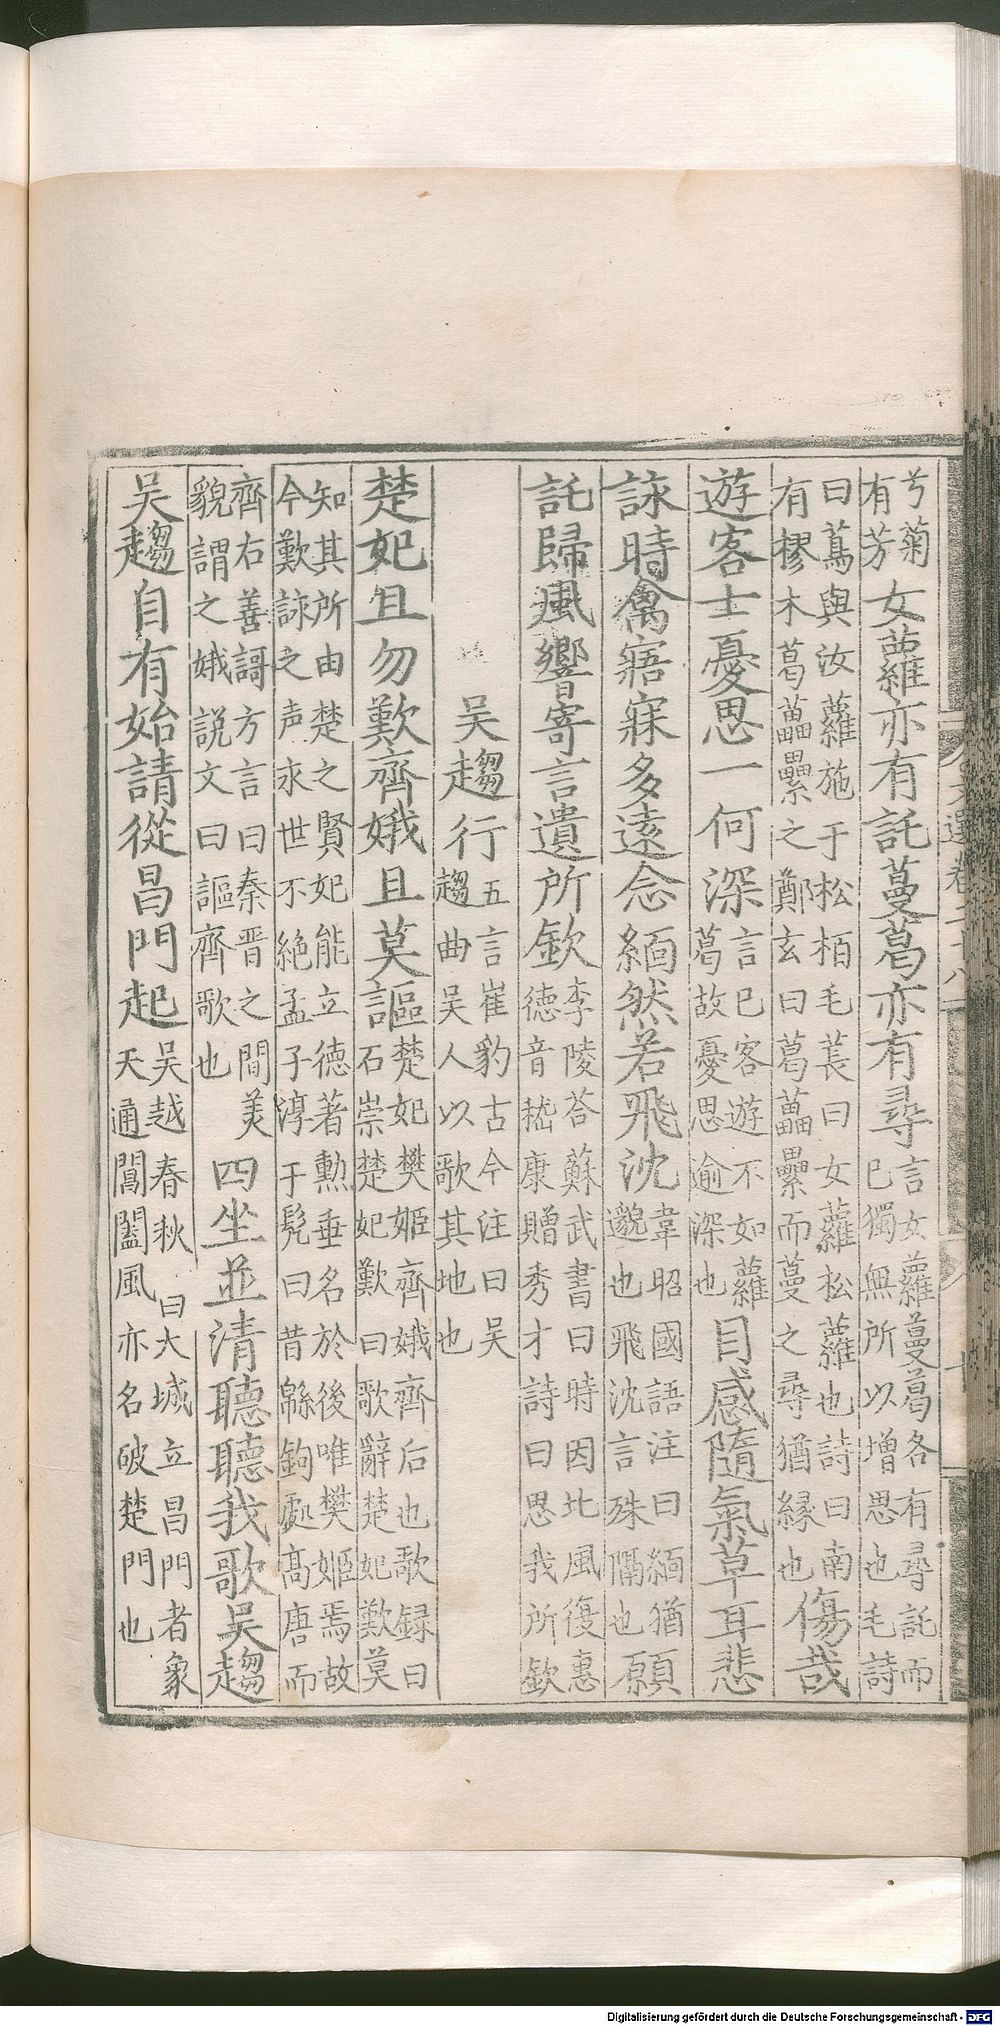 兮菊
有芳
女蘿亦有託蔓葛亦有尋
言女蘿蔓葛各有尋託而
已獨無所以增思也毛詩
曰蔦與汝蘿施于松栢毛萇曰女蘿松蘿也詩曰南
有樛木葛藟纍之鄭玄曰葛藟纍而蔓之尋猶縁也
傷哉
遊客士憂思一何深
言已客遊不如蘿
葛故憂思逾深也
目感隨氣草耳悲
詠時禽寤寐多遠念緬然若飛沈
韋昭國語注曰緬猶
邈也飛沈言殊隔也
願
託歸風響寄言遺所欽
李陵荅蘇武書曰時因北風復惠
德音嵇康贈秀才詩曰思我所欽
吳趨行
五言崔豹古今注曰吳
趨曲吳人以歌其地也
楚妃且勿歎齊娥且莫謳
楚妃樊姬齊娥齊后也歌録曰
石崇楚妃歎曰歌辭楚妃歎莫
知其所由楚之賢妃能立德著勳垂名於後唯樊姬焉故
今歎詠之声永世不絶孟子淳于髡曰昔緜駒處髙唐而
齊右善謌方言曰秦晉之間美
貌謂之娥説文曰謳齊歌也
四坐並清聽聽我歌吳趨
吳趨自有始請從昌門起
吳越春秋曰大城立昌門者象
天通閶闔風亦名破楚門也
Digitalisierung gefördert durch die Deutsche Forschungsgemeinschaft - DFG